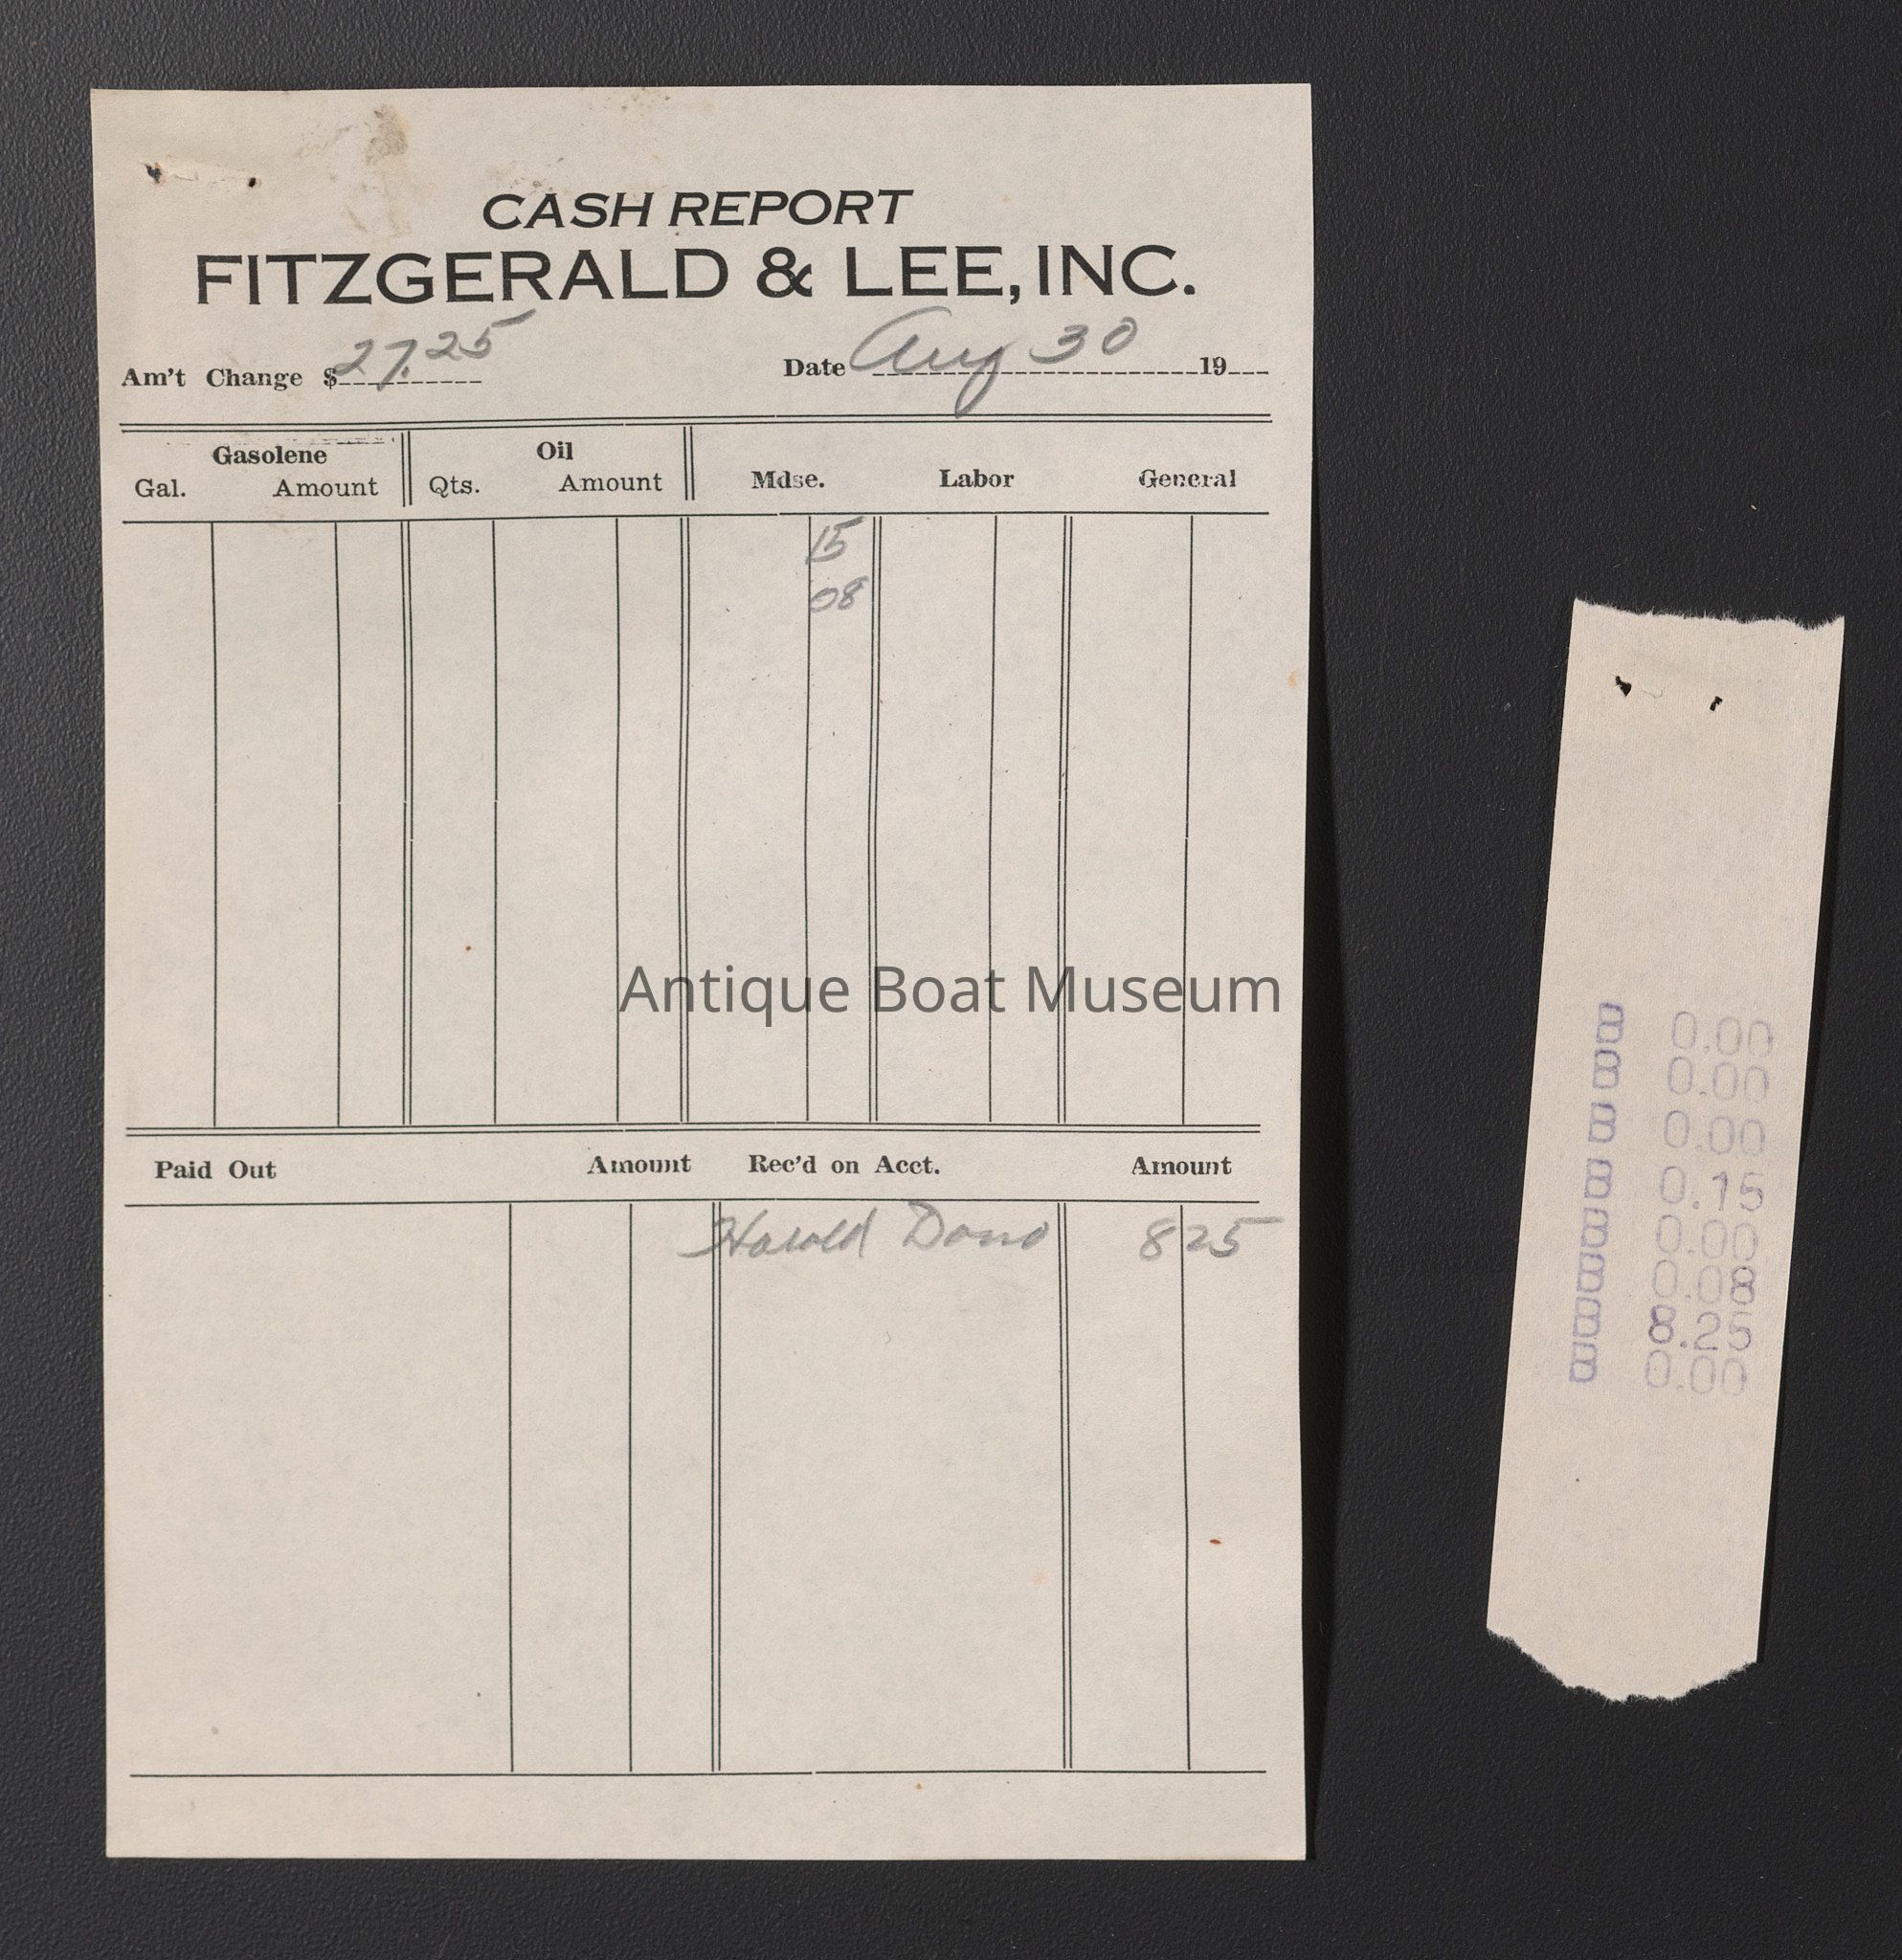 CASH REPORT
FITZGERALD & LEE, INC.
Am't Change $ 27.25 Date Aug 30 19
Gasolene Oil
Gal. Amount Qts. Amount Mdse. Labor General
15
08
Antique Boat Museum
Paid Out Amount Rec'd on Acct. Amount
Harold 8 25
B 0.00
B 0.00
B 0.00
B 0.15
B 0.00
B 0.08
B 8.25
B 0.00